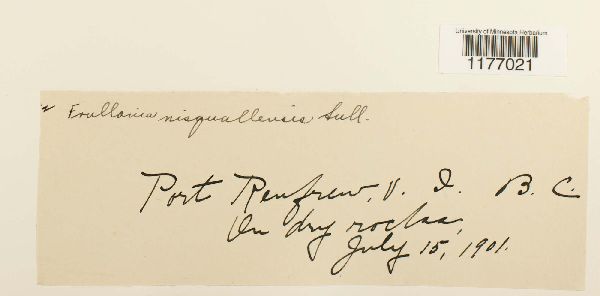 University of Minnesota Herbarium
1177021
Frullania nisquallensis Sull.
Port Renfrew, V. I. B. C.
On dry rocks,
July 15, 1901.